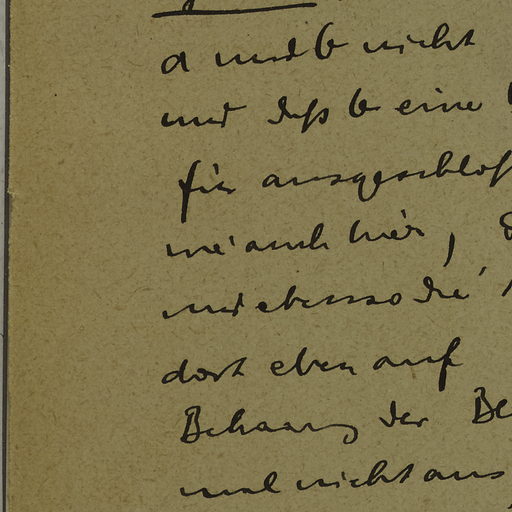 a und b nicht
und daß b eine
für ausgeschlos
wie auch hier,
und ebenso die
dort eben auf
Behaarung der Be
mal nicht aus